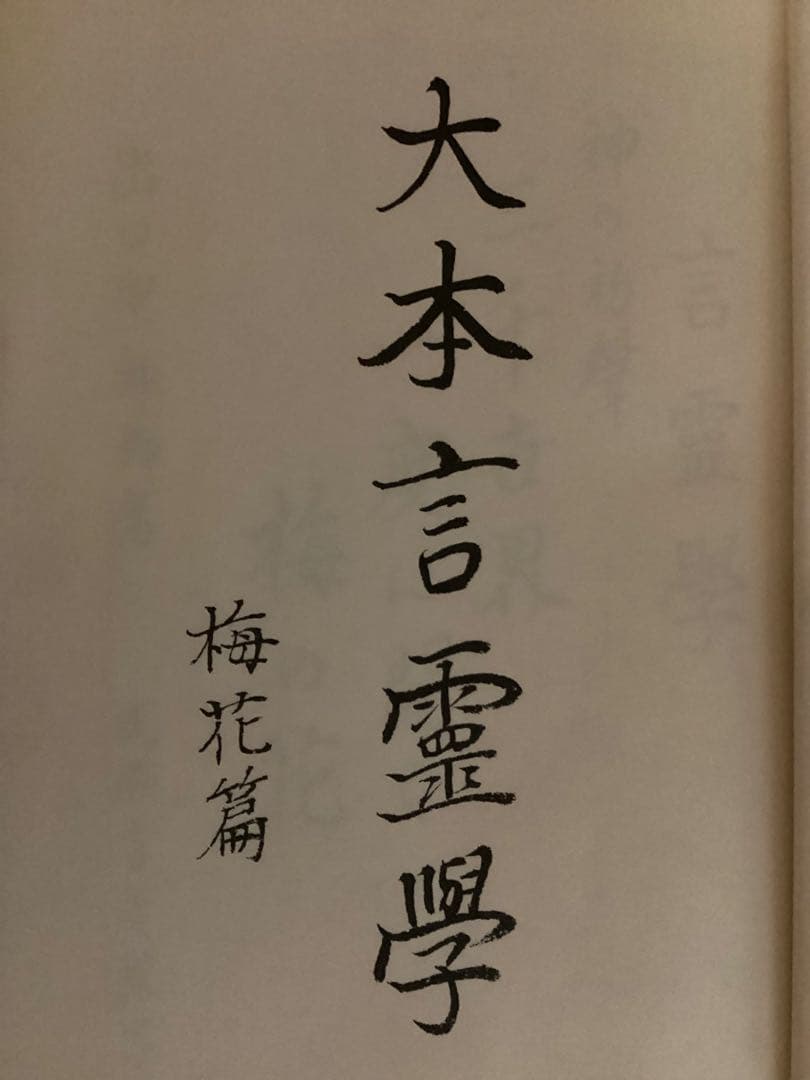 大本言靈學
梅花篇